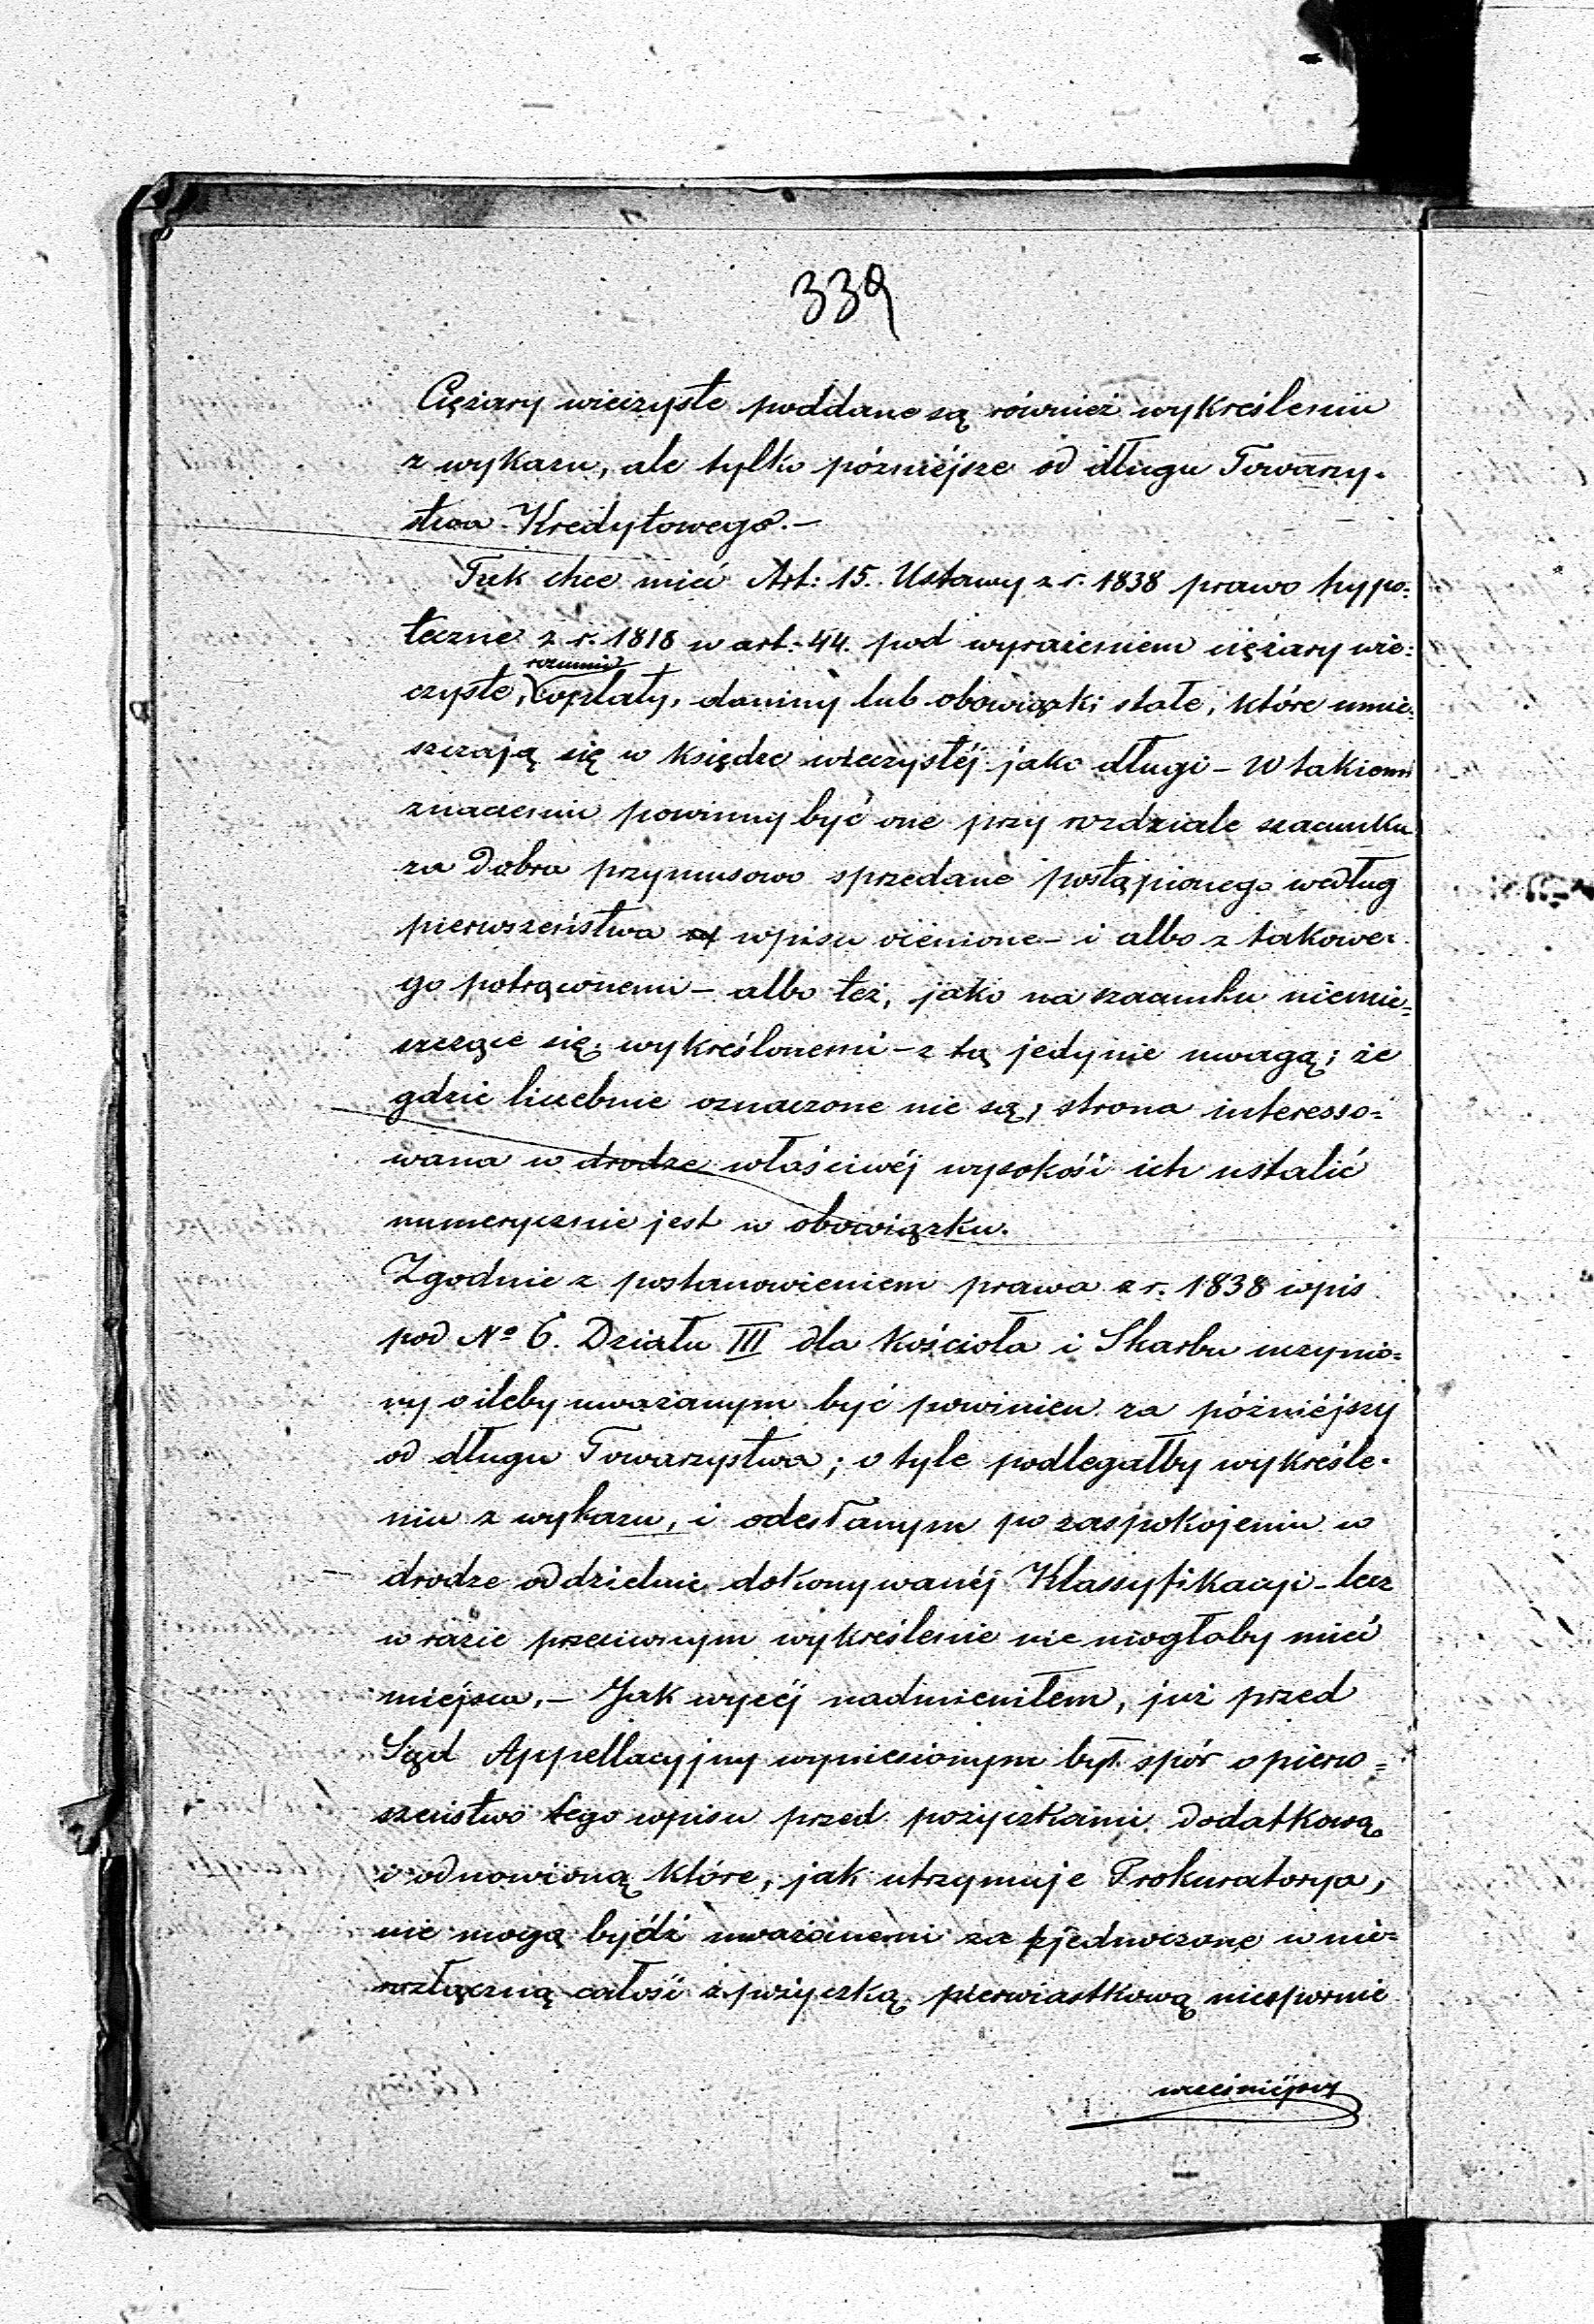 339
Ciężary wieczyste poddane są również wykreśleniu
z wykazu, ale tylko późniejsze od długu Towarzy-
stwa Kredytowego.—
Tak chce mieć Art: 15. Ustawy z r. 1838 prawo hypo=
teczne z r. 1818 w art: 44. pod wyrażeniem ciężary wie=
rozumie
czyste, opłaty, daniny lub obowiązki stałe, które umie=
szczają się w księdze wieczystéj jako długi – W takiem
znaczeniu powinny być one przy rozdziale szacunku
za dobra przymusowo sprzedane postąpionego według
pierwszeństwa wpisu ocenione – i albo z takowe=
go potrąconemi – albo też, jako na szacunku niemie=
szczące się, wykreślonemi – z tą jedynie uwagą; że
gdzie liczebnie oznaczone nie są, strona interesso=
wana w drodze właściwéj wysokość ich ustalić
numerycznie jest w obowiązku.
Zgodnie z postanowieniem prawa z r. 1838 wpis
pod No 6. Działu III dla Kościoła i Skarbu uczynio=
ny o ileby uważanym być powinien za późniéjszy
od długu Towarzystwa; o tyle podlegałby wykreśle-
niu z wykazu, i odesłanym po zaspokojenie w
drodze oddzielnie dokonywanéj Klassyfikacyi – lecz
w razie przeciwnym wykreślenie nie mogłoby mieć
miejsca.– Jak wyżéj nadmieniłem, już przed
Sąd Appellacyjny wyniesionym był spór o pierw=
szeństwo tego wpisu przed pożyczkami dodatkową
i odnowioną które, jak utrzymuje Prokuratorya,
nie mogą bydź uważanemi za zjednoczone w nie=
rozłączną całość z pożyczką pierwiastkową niespornie
wcześniéjszą